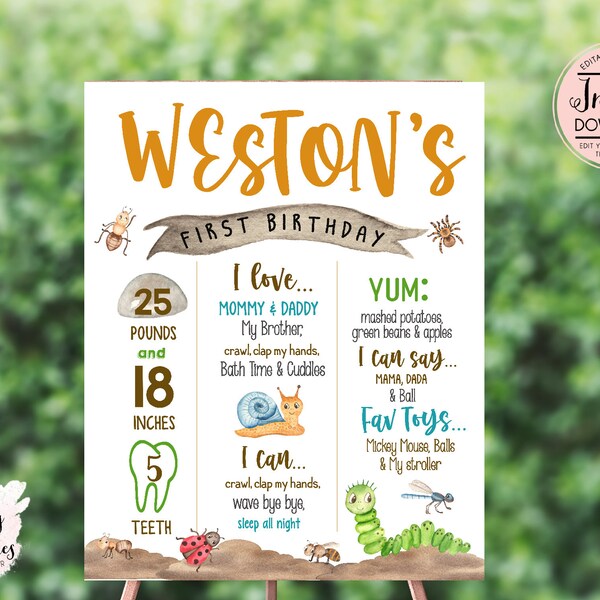 WESTON'S
FIRST BIRTHDAY
25
POUNDS
and
18
INCHES
5
TEETH
I love...
MOMMY & DADDY
My Brother,
crawl, clap my hands,
Bath Time & Cuddles
I can...
crawl, clap my hands,
wave bye bye,
sleep all night
YUM:
mashed potatoes,
green beans & apples
I can say...
MAMA, DADA
& Ball
Fav Toys...
Mickey Mouse, Balls
& My stroller